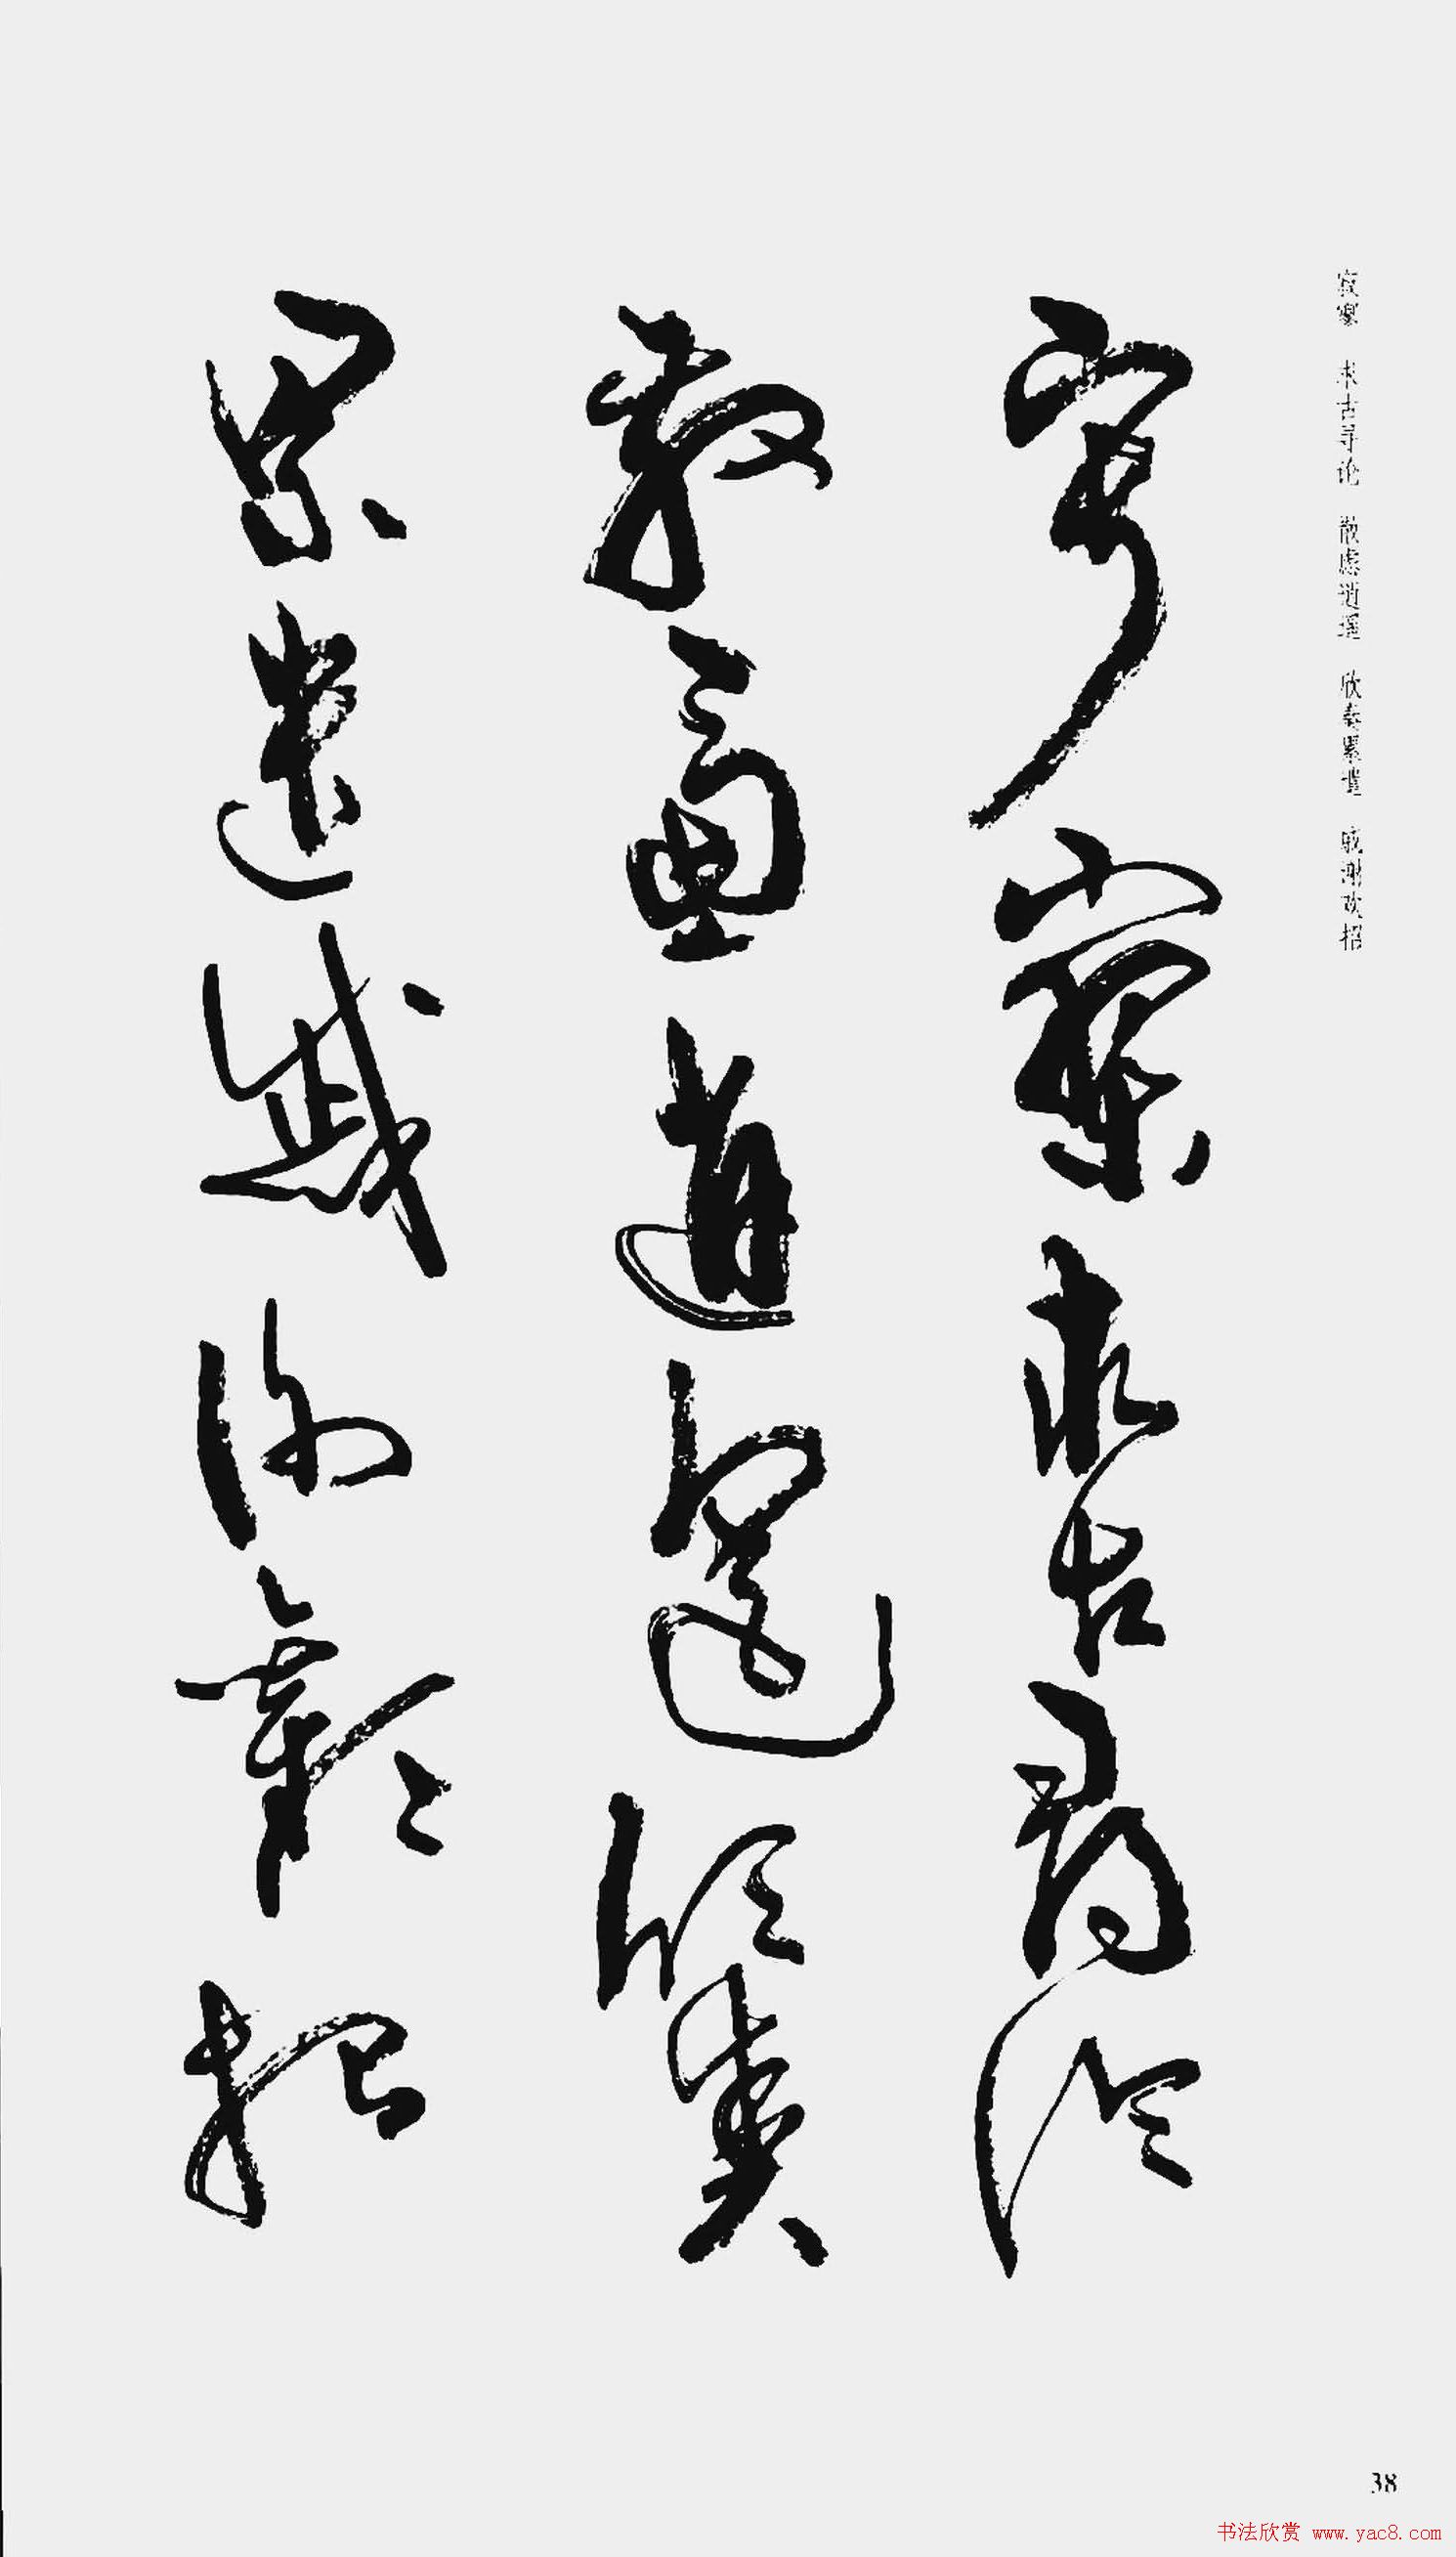 寂寥 求古寻论 散虑逍遥 欣奏累遣 戚谢欢招
寂寥求古尋論
散慮逍遙欣奏
累遣慼謝歡招
38
书法欣赏 www.yac8.com